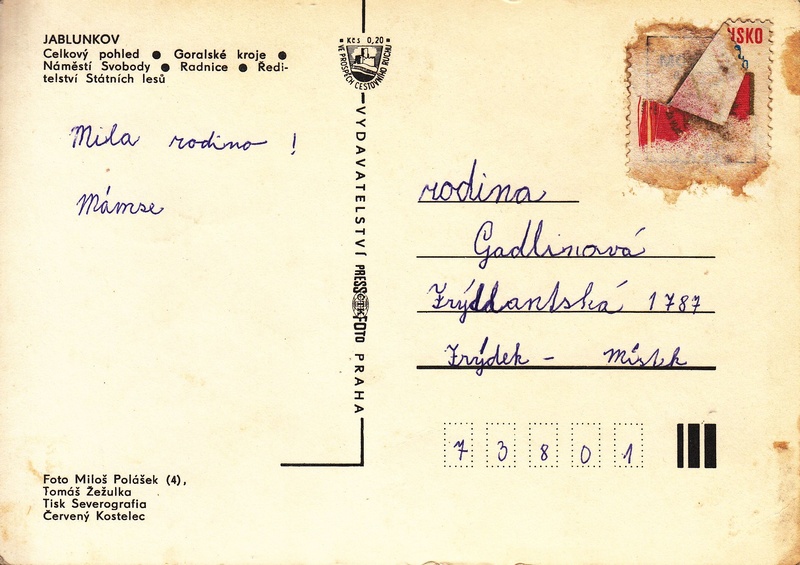 JABLUNKOV
Celkový pohled ● Goralské kroje ●
Náměstí Svobody ● Radnice ● Ředi-
telství Státních lesů
Kčs 0,20
VE PROSPĚCH CESTOVNÍHO RUCHU
Mila rodino !
Mámse
VYDAVATELSTVÍ PRESSFOTO PRAHA
rodina
Gadlinová
Frýdlantská 1787
Frýdek - Místek
73801
Foto Miloš Polášek (4),
Tomáš Žežulka
Tisk Severografia
Červený Kostelec